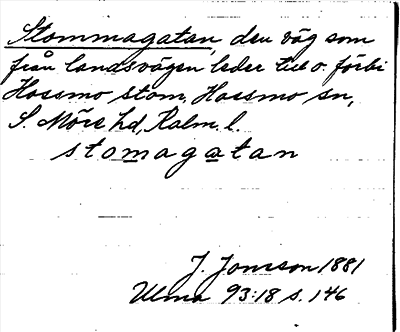 Stommagatan, den väg som
från landsvägen leder till o. förbi
Hossmo stom, Hossmo sn,
S. Möre hd, Kalm. l.
stomagatan
J. Jonsson 1881
Ulma 93:18 s. 146